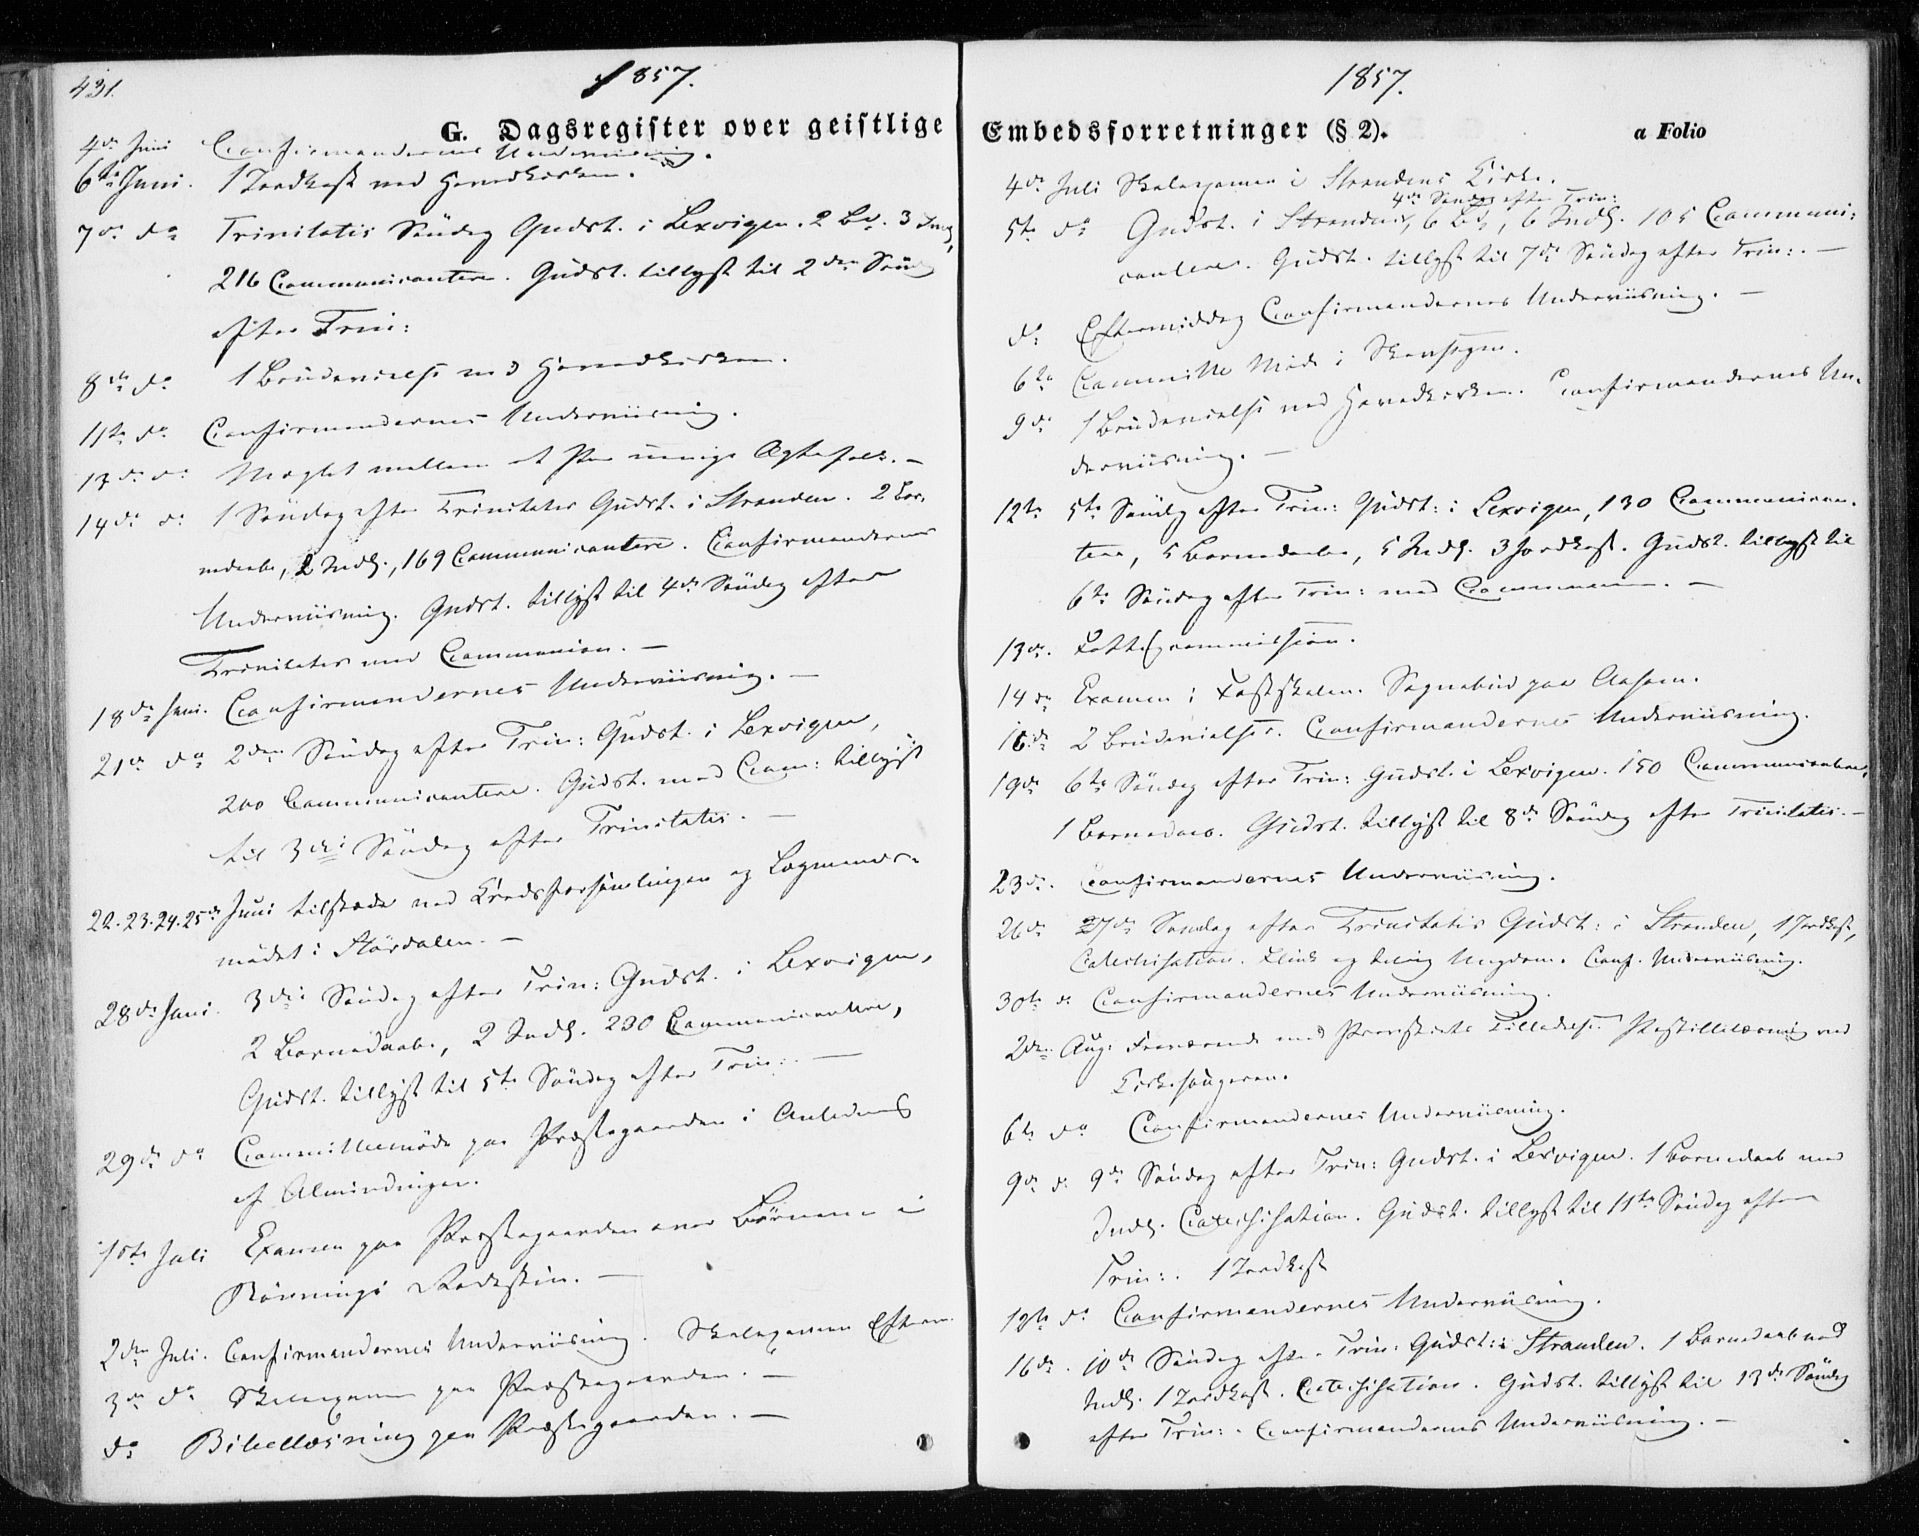 431.
1857.
G. Dagsregister over geistlige
4de Juni Confirmandernes Underviisning.
6te Juni. 1 Jordkast ved Hovedkirken.
7de do Trinitatis Søndag Gudst. i Lexvigen. 2 Bd. 3 Indl,
216 Communicantere. Gudst. tillyst til 2den Sønd
efter Trin:
8de do 1 Brudevielse ved Hovedkirken.
11te do Confirmandernes Underviisning.
13de do Mæglet mellem et Par uenige Ægtefolk. –
14de do 1 Søndag efter Trinitatis Gudst. i Stranden. 2 Bar-
nedaab, 2 Indl., 169 Communicantere. Confirmandernes
Underviisning. Gudst. tillyst til 4de Søndag efter
Trinitatis med Communion. –
18de Juni. Confirmandernes Underviisning. –
21de do 2den Søndag efter Trin: Gudst. i Lexvigen,
200 Communicantere. Gudst. med Com: tillyst
til 3die Søndag efter Trinitatis. –
22.23.24.25de Juni tilstede ved Kredsforsamlingen og Lagmands-
mødet i Størdalen. –
28de Juni. 3die Søndag efter Trin: Gudst. i Lexvigen,
2 Barnedaab, 2 Indl. 230 Communicantere,
Gudst. tillyst til 5te Søndag efter Trin: –
29de do Committeemøde paa Præstegaarden i Anledning
af Almindingen.
1ste Juli Examen paa Præstegaarden over Børnene i
Rønnings Rodeskin. –
2den Juli. Confirmandernes Underviisning. Skoleexamen Efterm.
3de do Skoleexamen paa Præstegaarden. –
do Bibellæsning paa Præstegaarden. –
1857.
Embedsforretninger (§ 2).
a Folio
4de Juli Skoleexamen i Strandens Kirke.
4de Søndag efter Trin:
5te do Gudst. i Stranden, 6 Bd, 6 Indl. 105 Communi-
cantere. Gudst. tillyst til 7de Søndag efter Trin: –
do Eftermiddag Confirmandernes Underviisning. –
6te Committe Møde i
9de 1 Brudevielse ved Hovedkirken. Confirmandernes Un-
derviisning. –
12te 5te Søndag efter Trin: Gudst: i Lexvigen, 130 Communican-
tere, 5 Barnedaabe, 5 Indl. 3 Jordkast. Gudst. tillyst til
6te Søndag efter Trin: med Communion. –
13de. Fattigcommission.
14de Examen i Fastskolen. Sognebud paa Aasen.
16de 2 Brudevielser. Confirmandernes Underviisning.
19de 6te Søndag efter Trin: Gudst. i Lexvigen. 150 Communicantere,
1 Barnedaab. Gudst. tillyst til 8de Søndag efter Trinitatis. –
23de. Confirmandernes Underviisning.
26de 7de Søndag efter Trinitatis Gudst: i Stranden, 1 Jordkast,
Catechisation. Flink og Ungdom. Conf. Underviisning.
30te do Confirmandernes Underviisning.
2den Aug: Fraværende med Provstiets Tilladelse Postillelæsning ved
Kirkesangeren.
6te do Confirmandernes Underviisning.
9de do 9de Søndag efter Trin: Gudst. i Lexvigen. 1 Barnedaab med
Indl. Catechisation. Gudst. tillyst til 11te Søndag efter
Trin:. 1 Jordkast
12te do Confirmandernes Underviisning.
16de. 10de Søndag efter Trin: Gudst: i Stranden. 1 Barnedaab med
Indl. 1 Jordkast. Catechisation. Gudst. tillyst til 13de Søndag
efter Trin:. Confirmandernes Underviisning. –